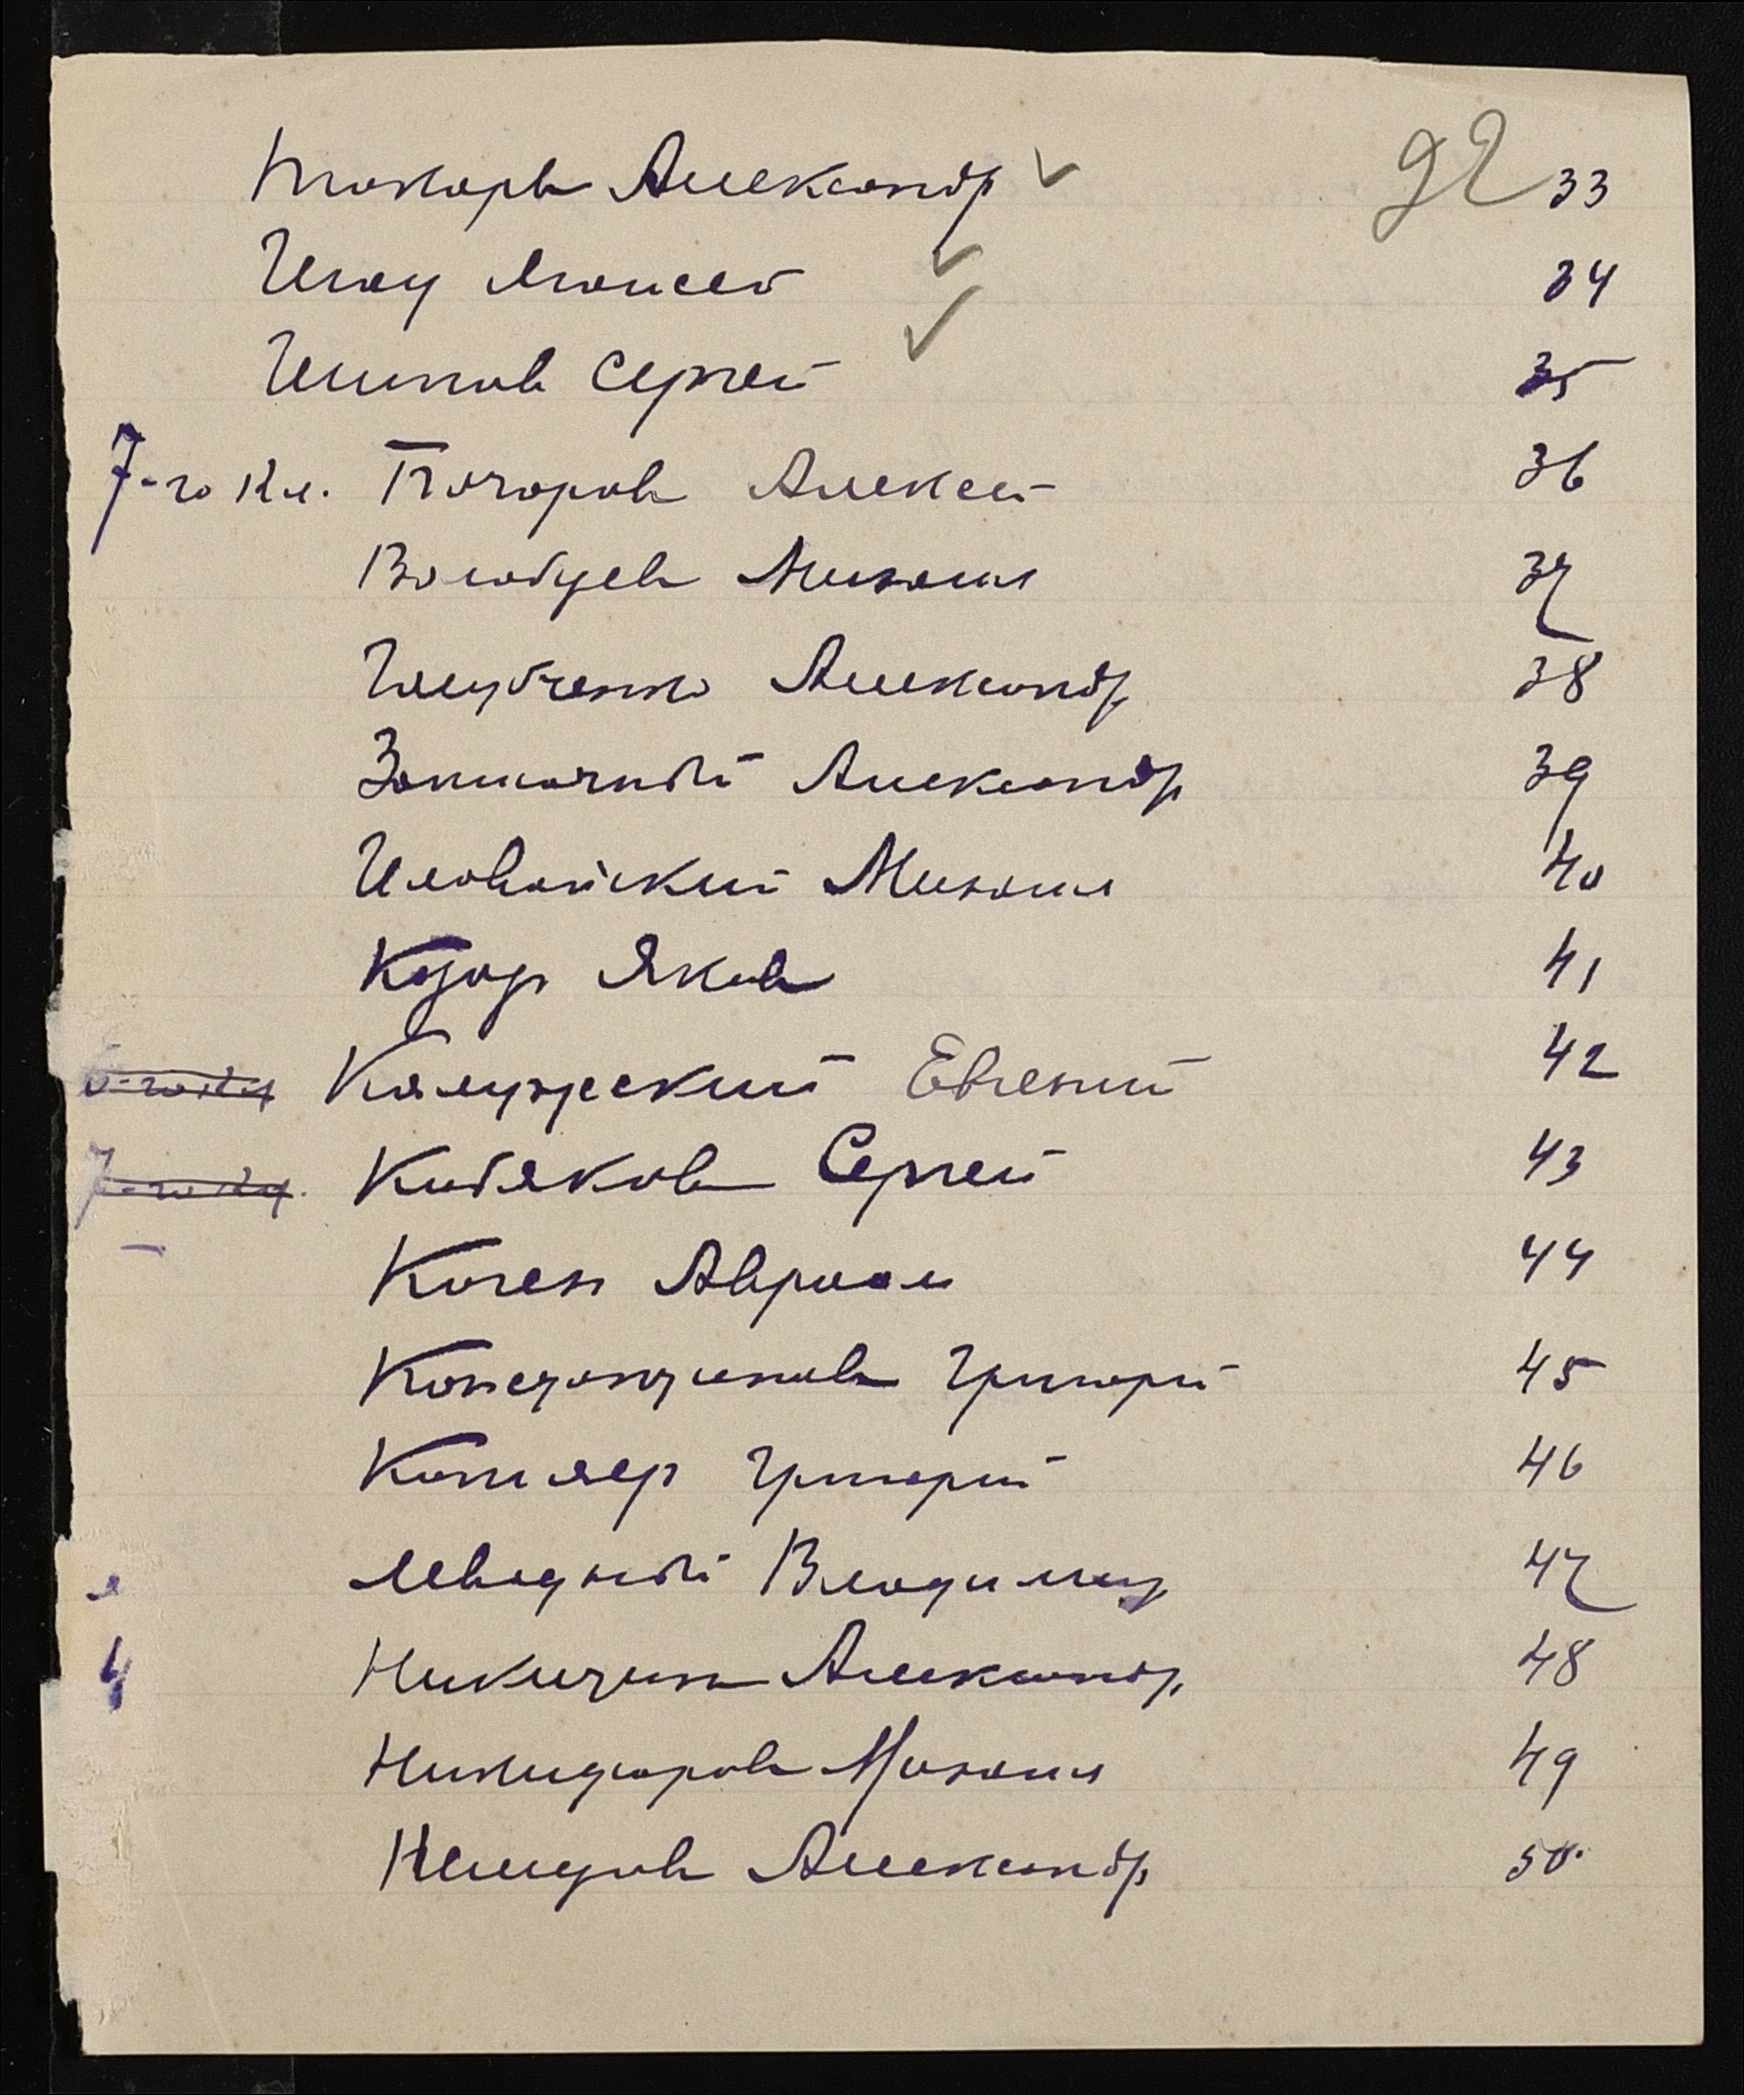 Токарь Александр 92 33
Моисей 34
Шипов Сергей 35
7-го кл. Бочаров Алексей 36
Волобуев Михаил 37
Голубченко Александр 38
Александр 39
Иловайский Михаил 40
Яков 41
Калужский Евгений 42
7-го кл. Кибяков Сергей 43
Коген Авраам 44
Константинов Григорий 45
Котляр Григорий 46
Левадный Владимир 47
Никитин Александр 48
Никифоров Михаил 49
Александр 50